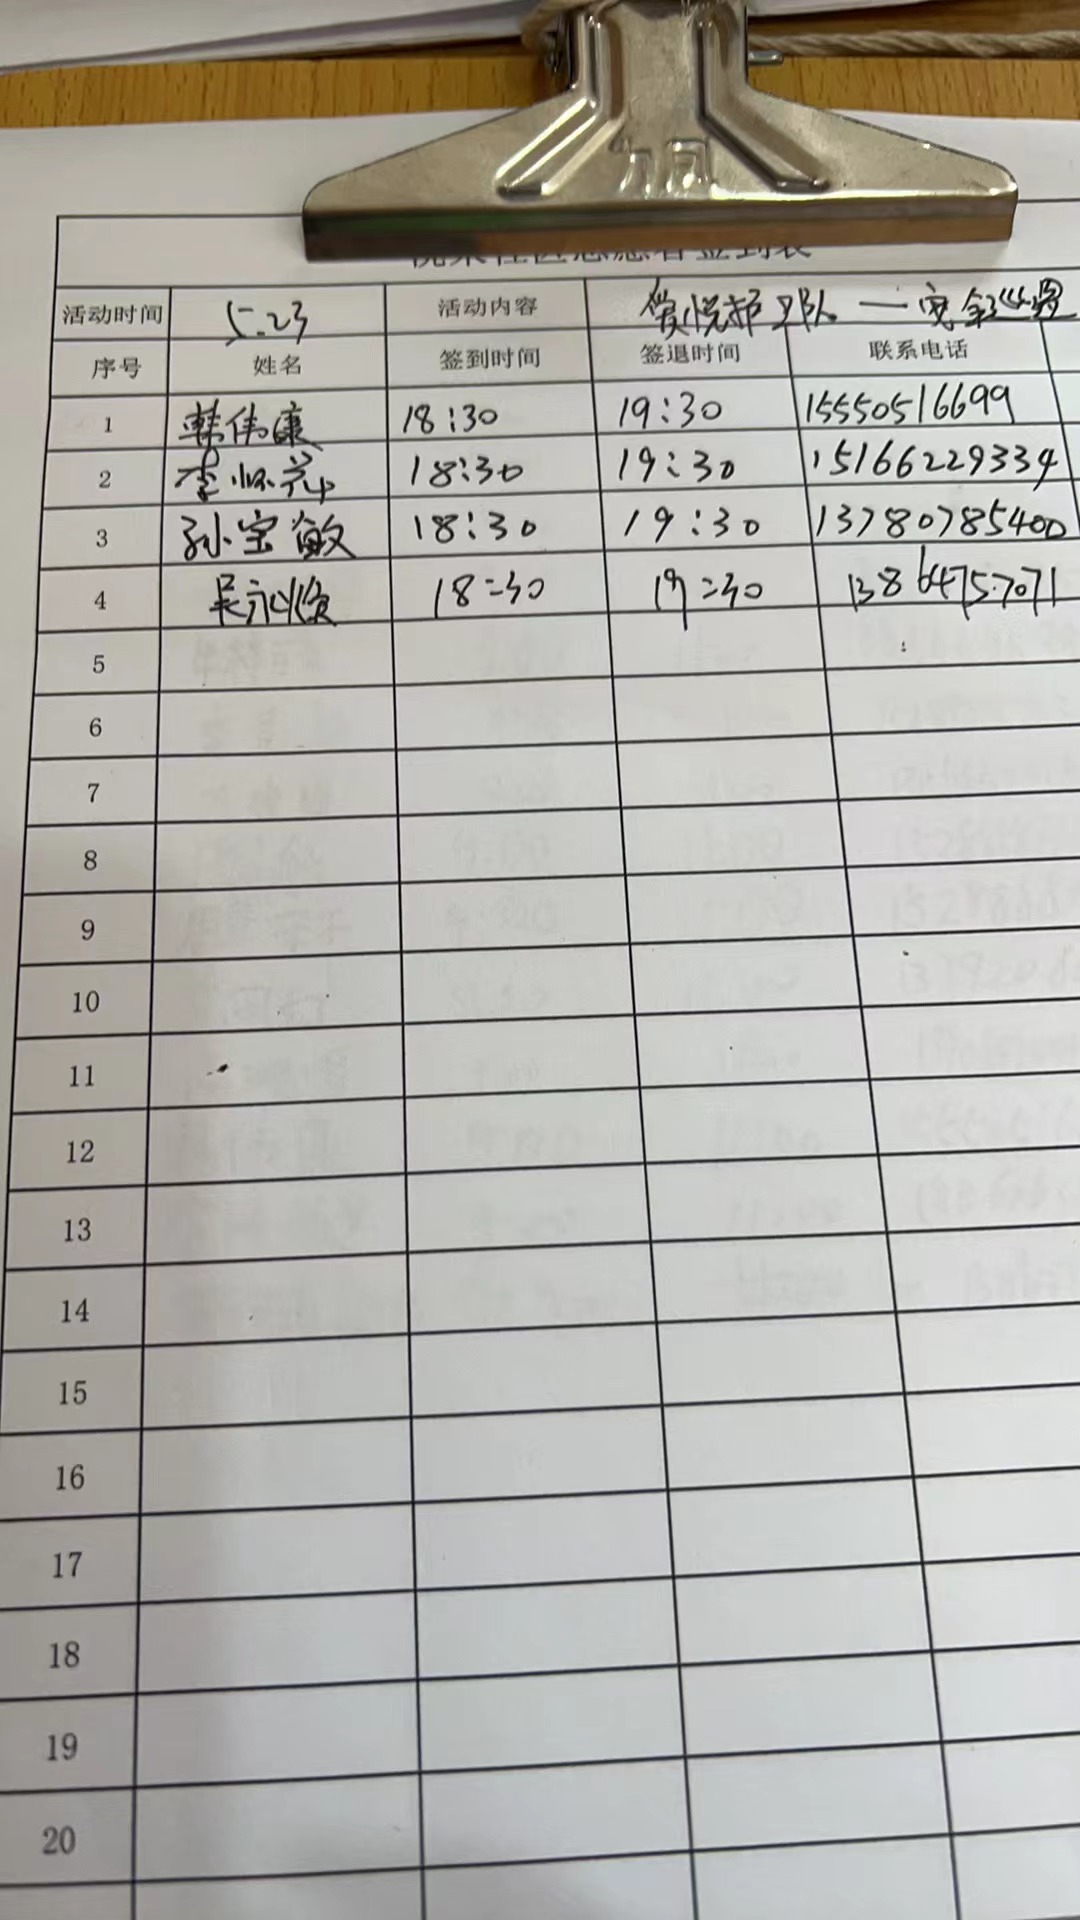 社区志愿者签到表
活动时间 5.23 活动内容 爱悦护卫队—安全巡逻
序号 姓名 签到时间 签退时间 联系电话
1 韩伟康 18:30 19:30 15550516699
2 李 18:30 19:30 15166229334
3 孙宝敏 18:30 19:30 13780785400
4 吴永俊 18:30 19:30 13864757071
5
6
7
8
9
10
11
12
13
14
15
16
17
18
19
20